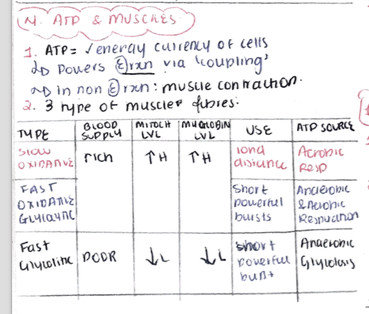 4. ATP & MUSCLES
1. ATP = √energy currency of cells
↳ Powers Ⓔrxn via 'coupling'
↳ In non Ⓔrxn: muscle contraction.
2. 3 type of muscles fibres.
TYPE BLOOD SUPPLY MITOCH LVL MYOGLOBIN LVL USE ATP SOURCE
SLOW OXIDATIVE rich ↑H ↑H long distance Aerobic Resp
FAST OXIDATIVE GLYCOLYTIC short powerful bursts Anaerobic & Aerobic Respiration
Fast Glycolitic POOR ↓L ↓L short powerful burst Anaerobic Glycolysis